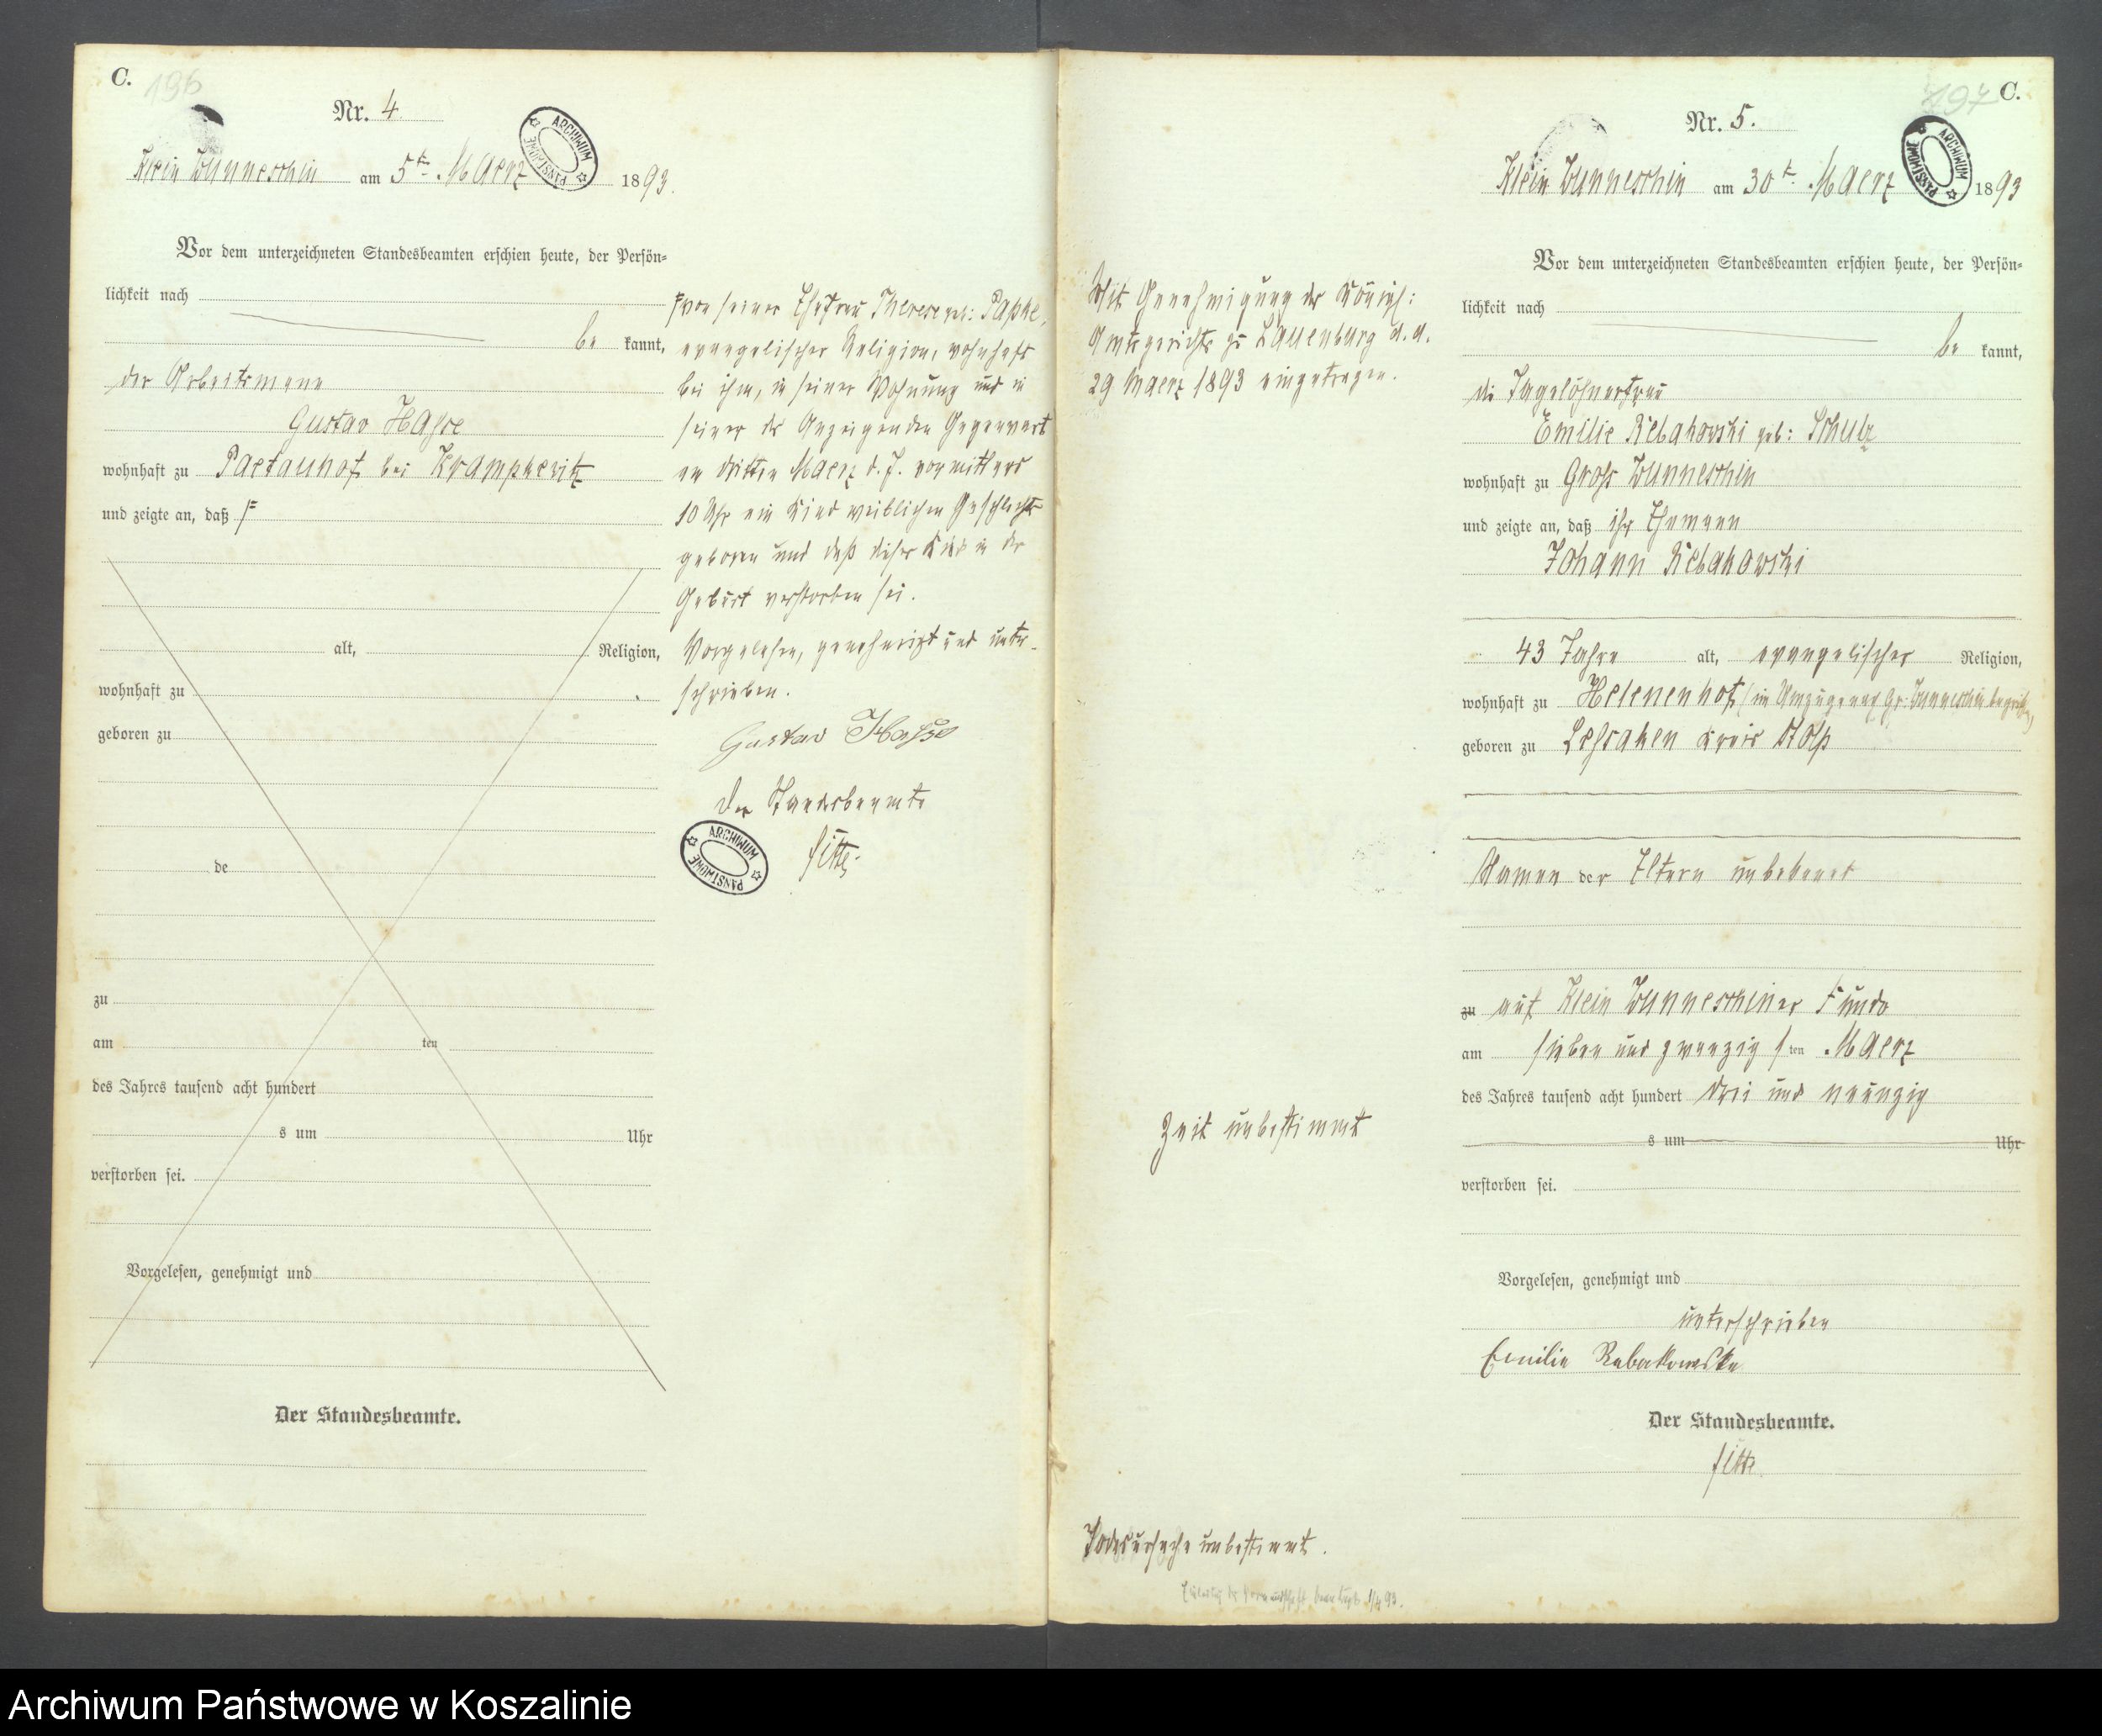 C.
196
Nr. 4
ARCHIWUM PAŃSTWOWE
Klein Wunneschin am 5t. Maerz 1893.
Vor dem unterzeichneten Standesbeamten erschien heute, der Persön=
lichkeit nach
be kannt,
der Arbeitsmann
Gustav Hasse
wohnhaft zu Paetauhof bei Krampkewitz
und zeigte an, daß
alt, Religion,
wohnhaft zu
geboren zu
de
zu
am ten
des Jahres tausend acht hundert
s um Uhr
verstorben sei.
Vorgelesen, genehmigt und
Der Standesbeamte.
von seiner Ehefrau Therese geb: Papke,
evangelischer Religion, wohnhaft
bei ihm, in seiner Wohnung und in
seiner des Anzeigenden Gegenwart
am dritten Maerz d. J. vormittags
10 Uhr ein Kind weiblichen Geschlechts
geboren und daß dieses Kind in der
Geburt verstorben sei.
Vorgelesen, genehmigt und unter-
schrieben.
Gustav Hasse
Der Standesbeamte
ARCHIWUM PAŃSTWOWE
197
C.
Nr. 5.
ARCHIWUM PAŃSTWOWE
Klein Wunneschin am 30t. Maerz 1893
Vor dem unterzeichneten Standesbeamten erschien heute, der Persön=
lichkeit nach
be kannt,
die Tagelöhnerfrau
Emilie Rebakowski geb: Schulz
wohnhaft zu Gross Wunneschin
und zeigte an, daß ihr Ehemann
Johann Rebakowski
43 Jahre alt, evangelischer Religion,
wohnhaft zu Helenenhof (im Umzuge nach Gr: Wunneschin begriffen)
geboren zu Kreis Stolp
Namen der Eltern unbekannt
zu auf Klein Wunneschiner Fundo
am sieben und zwanzig sten Maerz
des Jahres tausend acht hundert drei und neunzig
s um Uhr
verstorben sei.
Vorgelesen, genehmigt und
unterschrieben
Emilie Rebakowska
Der Standesbeamte.
Mit Genehmigung des Königl:
Amtsgerichts zu Lauenburg d. d.
29 Maerz 1893 eingetragen.
Zeit unbestimmt
Todesursache unbestimmt.
1/4 93.
Archiwum Państwowe w Koszalinie